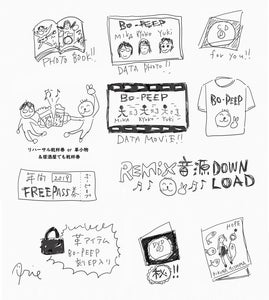 PHOTO BOOK!!
BO-PEEP
MIKA Ryoko Yuki
DATA PHOTO!!
for you!!
リハーサル乾杯券 or 革小物
&居酒屋でも乾杯券
BO-PEEP
MIKA RYOKO YUKI
DATA MOVIE!!
BO-PEEP
年間 2019
FREEPASS券
REMIX音源 DOWN
LOAD
革アイテム
BO-PEEP
刻印入り
BO-PEEP
HOPE